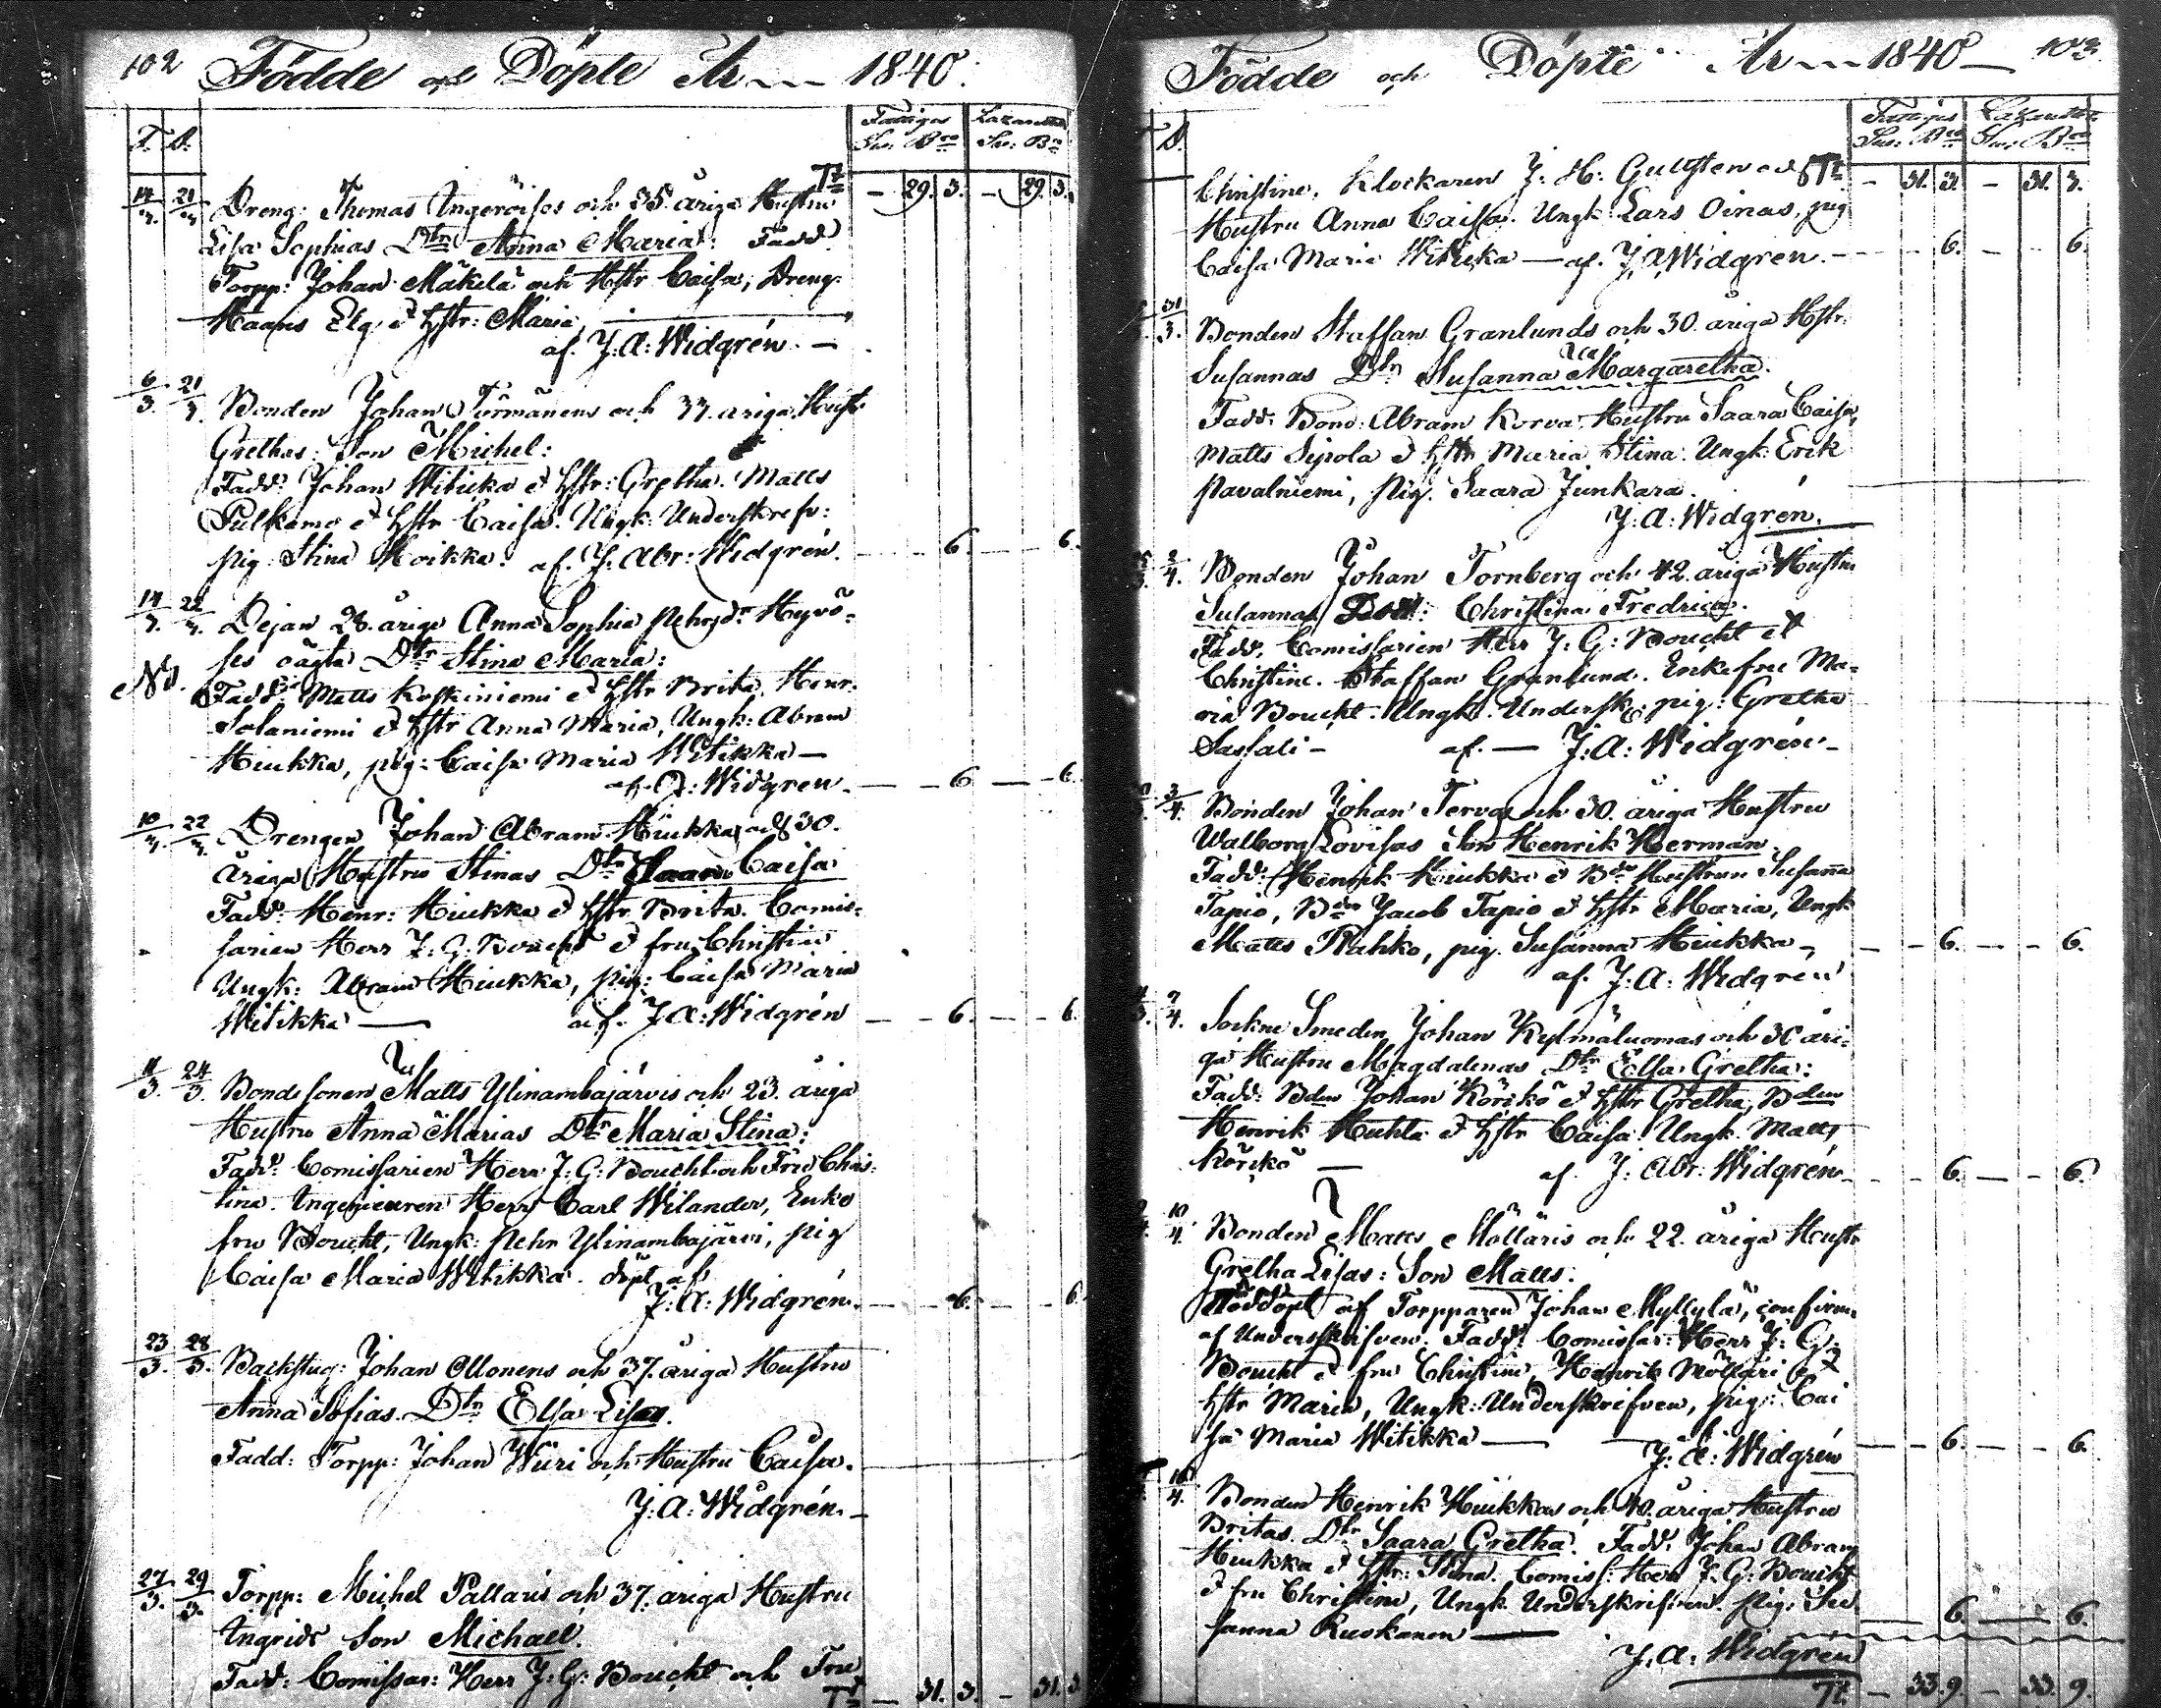 102 Födde och Döpte År 1840.
F. D. Fattigas Lazarettet
Sv: Bco Sv: Bco
Tt — 29. 3. — 29. 3.
14/3. 21/3. Dreng: Thomas Ingeröises och 35. åriga Hustru
Lisa Sophias Dtr Anna Maria: Fadd:
Torpp: Johan Mäkelä och Hstr Caisa, Dreng:
Maans Elg et Hstr: Maria,
af. J: A: Widgrén. —
6/3. 21/3. Bonden Johan Törmänens och 33. åriga Hustr
Grethas: Son Michel:
Fadd: Johan Witicka et Hstr: Gretha. Matts
Pulkamo et Hstr Caisa. Ungk: Underskrefv:
pig: Stina Moikka. af. J. Abr: Widgrén. — 6. — 6.
14/3. 22/3. Dejan 28. åriga Anna Sophia Pehrsdr Hyvö-
ses oägta Dtr Stina Maria:
Fadd: Matts Koskiniemi et Hstr Brita. Henr.
Solaniemi et Hstr Anna Maria, Ungk: Abram
Hiukka, pig: Caisa Maria Witikka —
af. J: Widgren. — 6 — 6.
10/3. 22/3. Drengen Johan Abram Hiukkas och 30.
åriga Hustru Stinas Dtr Saara Caisa
Fadd: Henr: Hiukka et Hstr Brita. Comis-
sarien Herr J. G. Boucht et fru Christin
Ungk: Abram Hiukka, pig: Caisa Maria
Witikka — af. J A: Widgrén — 6. — 6.
11/3. 24/3. Bondesonen Matts Ylinambajärvis och 23. åriga
Hustru Anna Marias Dtr Maria Stina:
Fadd: Comissarien Herr J: G: Boucht och Fru Chris-
tina. Ingenieuren Herr Carl Wilander, Enke
fru Boucht, Ungk: Pehr Ylinambajärvi, pig
Caisa Maria Witikka. döpt af
J: A: Widgrén. — 6. — 6.
23/3. 28/3. Backstug: Johan Ollonens och 37. åriga Hustru
Anna Sofias Dtr Elsa Lisa.
Fadd: Torpp: Johan Wiiri och Hustru Caisa.
J: A: Widgrén. —
27/3. 29/3. Torpp: Michel Pallaris och 37. åriga Hustru
Ingrids Son Michael.
Fadd: Comissar: Herr J: G: Boucht och Fru
Tt — 31. 3. — 31. 3.
Födde och Döpte År 1840 — 103.
D. Fattigas Lazarettet
Sv: Bco Sv: Bco
Christine. Klockaren J: H: Gullsten och Tt — 31. 3. — 31. 3.
Hustru Anna Caisa. Ungk: Lars Oinas, pig
Caisa Maria Witikka — af. J. A Widgrén. — 6. — 6.
31/3. Bonden Staffan Granlunds och 30. åriga Hstr:
Susannas Dtr Susanna Margaretha.
Fadd: Bond: Abram Korva. Hustru Saara Caisa,
Matts Sipola et Hstr Maria Stina. Ungk: Erik
Pavalniemi, Pig. Saara Junkara.
J: A: Widgrén.
2/4. Bonden Johan Tornberg och 42. åriga Hustru
Susannas Dott: Christina Fredrica.
Fadd. Comissarien Herr J: G: Boucht et
Christine. Staffan Granlund. Enkefru Ma-
ria Boucht. Ungk. Undersk: pig: Gretha
Sassali — af. — J: A: Widgrén —
3/4. Bonden Johan Tervas och 30. åriga Hustru
Walborg Lovisas Son Henrik Herman.
Fadd: Henrik Hiukka et Bde Hustrun Susanna
Tapio, Bdn Jacob Tapio et Hstr Maria, Ungk
Matts Rahko, pig. Susanna Hiukka — 6. — 6.
af. J: A: Widgrén
7/4. Sockne Smeden Johan Kylmäluomas och 30 åri-
ga Hustru Magdalenas Dtr Elsa Gretha:
Fadd: Bden Johan Körkö et Hstr Gretha, Bden
Henrik Huhta et Hstr Caisa. Ungk. Matts
Körkö — af. J. Abr: Widgrén — 6. — 6.
10/4. Bonden Matts Mölläris och 22. åriga Hustr
Gretha Lisas: Son Matts.
Nöddöpt af Torpparen Johan Myllylä, confirm.
af Underskrifven. Fadd: Comissar: Herr J: G:
Boucht et fru Christine, Henrik Möllari et
Hstr Maria, Ungk: Underskrifven, pig: Cai
sa Maria Witikka — J: A: Widgrén — 6. — 6.
16/4. Bonden Henrik Hiukkas och 40. åriga Hustru
Britas. Dtr Saara Gretha. Fadd: Johan Abram
Hiukka et Hstr: Stina. Comiss: Herr J: G: Boucht
et fru Christine, Ungk. Underskrifven. Pig. Su
sanna Ruokanen — 6. — 6.
J. A: Widgrén
Tt — 33. 9. — 33. 9.